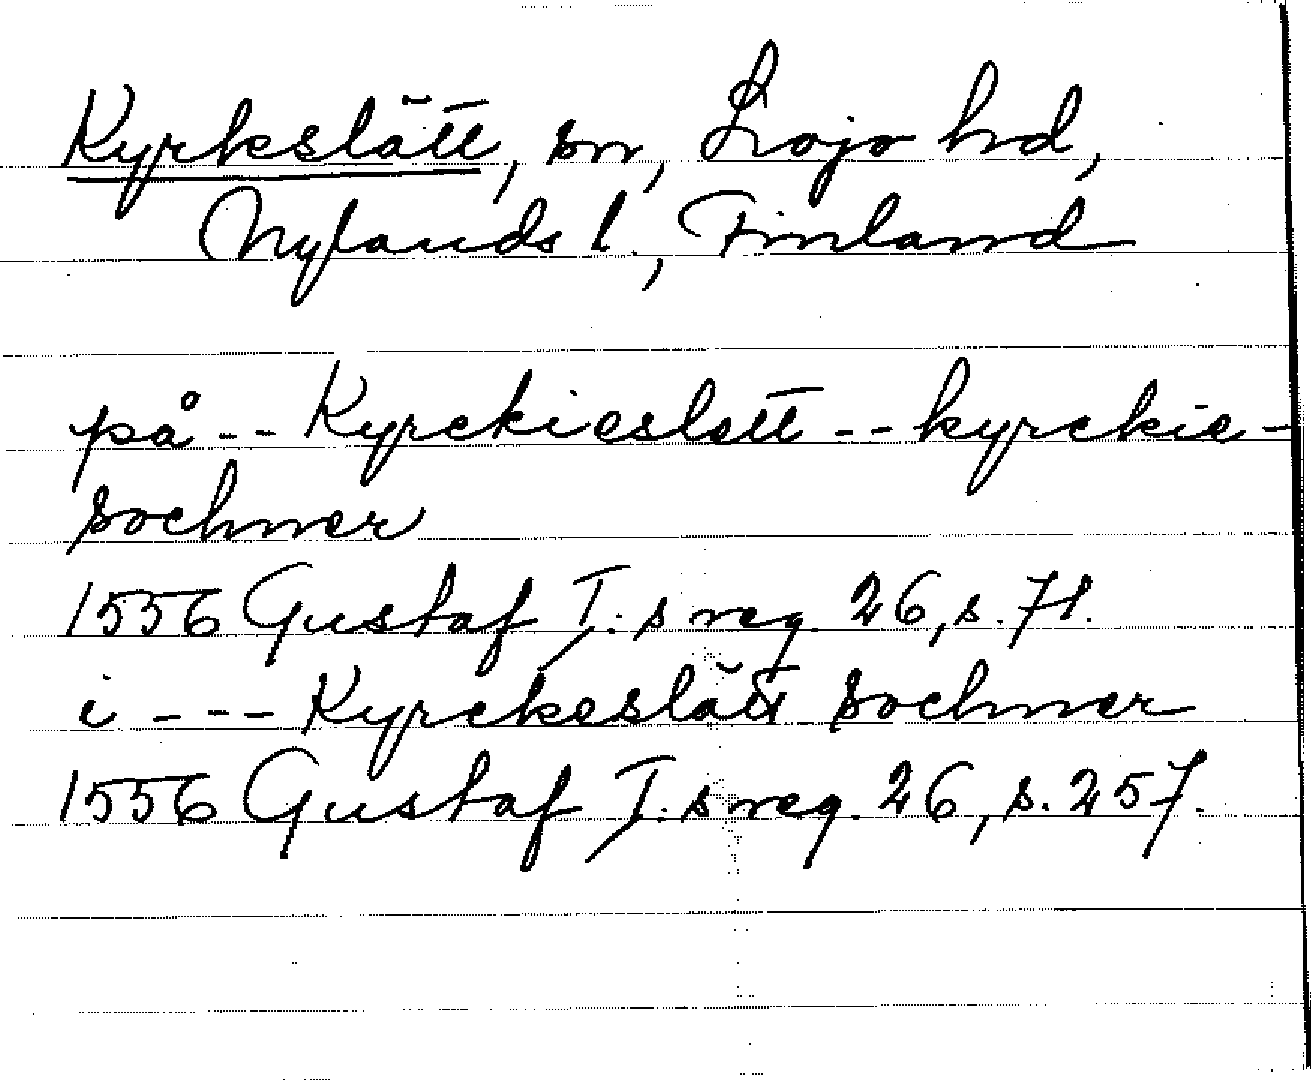 Kyrkslätt, sn, Lojo hd,
Nylands l., Finland
på -- Kyrckieslett -- kyrckie-
sochner
1556 Gustaf I:s reg. 26, s. 71.
i --- Kyrckeslätt sochner
1556 Gustaf I:s reg. 26, s. 257.